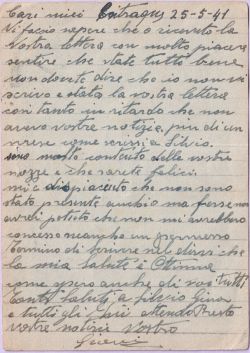 Cari miei 25-5-41
Vi faccio sapere che o ricevuto la
Vostra lettera con molto piacere
sentire che state tutti bene
non dovete dire che io non vi
scrivo e stata la vostra lettera
con tanto in ritardo che non
avevo vostre notizie, più di un
mese come Silvio.
sono molto contento delle vostre
nozze e che sarete felici.
mi è dispiaciuto che non sono
stato presente anchio ma forse non
avrei potuto che non mi avrebbero
concesso neancho un permesso
Termino di scrivere nel dirvi che
la mia salute è Ottima
come spero anche di voi tutti
tanti saluti a Silvio Gino
e tutti gli Attendo Presto
vostre notizie Vostro